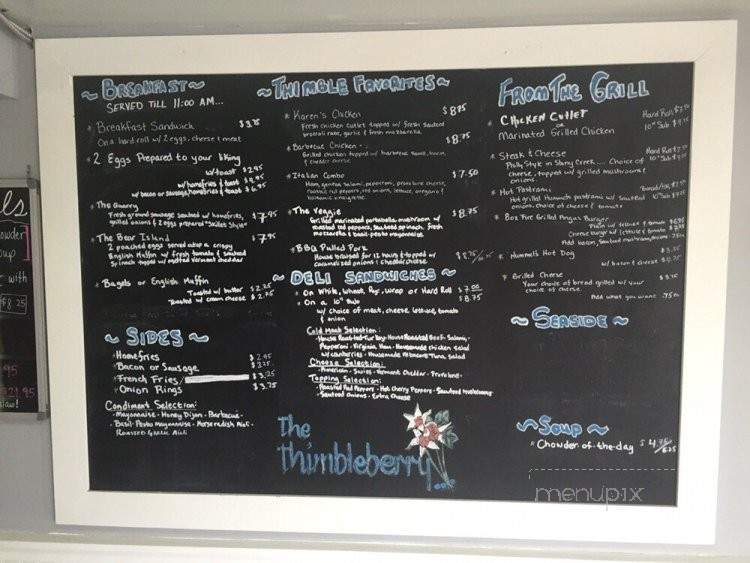 ~ BREAKFAST ~
SERVED TILL 11:00 AM...
* Breakfast Sandwich $3.75
On a hard roll w/ 2 eggs, cheese & meat
* 2 Eggs Prepared to your liking
w/toast $2.95
w/homefries & toast $4.95
w/bacon or sausage, homefries & toast $6.95
* The Quarry $7.95
Fresh ground sausage sauteed w/ homefries,
grilled onions & 2 eggs prepared "Skillet Style"
* The Bear Island $7.95
2 poached eggs served atop a crispy
English Muffin w/ fresh tomato & sauteed
Spinach topped w/ melted Vermont cheddar
* Bagels or English Muffin
Toasted w/ butter $2.25
Toasted w/ cream cheese $2.75
~ SIDES ~
* Homefries $2.95
* Bacon or Sausage
* French Fries $3.25
* Onion Rings $3.75
Condiment Selection:
- Mayonnaise - Honey Dijon - Barbecue -
- Basil Pesto Mayonnaise - Horseradish Aioli -
Roasted Garlic Aioli
~ THIMBLE FAVORITES ~
* Karen's Chicken $8.75
Fresh chicken cutlet topped w/ fresh sauteed
broccoli rabe, garlic & fresh mozzarella
* Barbecue Chicken $8.75
Grilled chicken topped w/ barbecue sauce, bacon,
& cheddar cheese
* Italian Combo $7.50
Ham, genoa salami, pepperoni, provolone cheese,
roasted red peppers, red onions, lettuce, oregano &
balsamic vinaigrette
* The Veggie $8.75
Grilled marinated portobello mushroom w/
roasted red peppers, sauteed spinach, fresh
mozzarella & basil pesto mayonnaise
* BBQ Pulled Pork $8.75/
House braised for 12 hours & topped w/
caramelized onions & cheddar cheese
DELI SANDWICHES ~
* On White, Wheat, Rye, Wrap or Hard Roll $7.00
* On a 10" Sub $8.75
w/ choice of meat, cheese, lettuce, tomato
& onion
Cold Meat Selection:
- House Roasted Turkey - House Roasted Beef - Salami -
Pepperoni - Virginia Ham - Homemade chicken salad
w/ cranberries - Homemade Albacore Tuna Salad
Cheese Selection:
- American - Swiss - Vermont Cheddar - Provolone -
Topping Selection:
- Roasted Red Peppers - Hot Cherry Peppers - Sauteed Mushrooms
- Sauteed Onions - Extra Cheese
The
Thimbleberry
FROM THE GRILL
* CHICKEN CUTLET Hard Roll $7.50
or 10" Sub
Marinated Grilled Chicken
* Steak & Cheese Hard Roll
Philly Style in Stony Creek.... Choice of 10" Sub
cheese, topped w/ grilled mushrooms &
onions
* Hot Pastrami
Hot grilled Hummels pastrami w/ Sauteed
onions, choice of cheese & tomato
* 8oz Pure Grilled Angus Burger
Plain w/ lettuce & tomato
Cheese burger w/ lettuce & tomato
Add bacon, sauteed mushrooms, onions
* Hummels Hot Dog
w/ bacon & cheese
* Grilled Cheese
Your choice of bread grilled w/ your
choice of cheese
Add what you want .75
~ SEASIDE ~
~ SOUP ~
* Chowder-of-the-day $4.75/
menupix
ls
owder
oup
r with
$8.25
21.95
slaw!